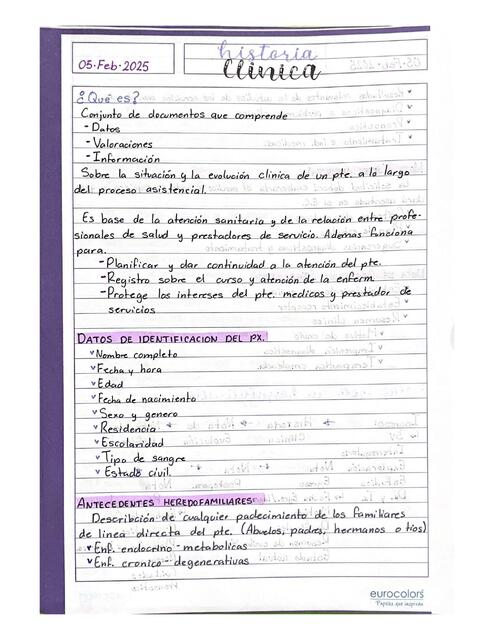 05·Feb·2025
historia
Clinica
¿Qué es?
Conjunto de documentos que comprende
-Datos
-Valoraciones
-Información
Sobre la situación y la evolución clinica de un pte. a lo largo
del proceso asistencial.
Es base de la atención sanitaria y de la relación entre profe-
sionales de salud y prestadores de servicio. Además funciona
para.
-Planificar y dar continuidad a la atención del pte.
-Registro sobre el curso y atención de la enferm.
-Protege los intereses del pte. medicos y prestador de
servicios
DATOS DE IDENTIFICACION DEL PX.
Nombre completo
Fecha y hora
Edad
Fecha de nacimiento
Sexo y genero
Residencia
Escolaridad
Tipo de sangre
Estado civil.
ANTECEDENTES HEREDOFAMILIARES
Describción de cualquier padecimiento de los familiares
de linea directa del pte. (Abuelos, padres, hermanos o tios)
Enf. endocrino-metabolicas
Enf. cronico-degenerativas
eurocolors
Papeles que inspiran